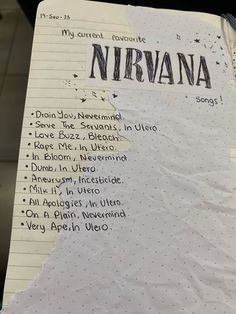 19-Sep-23
My current favourite
NIRVANA
songs!
• Drain You, Nevermind
• Serve The Servants, In Utero.
• Love Buzz, Bleach.
• Rape Me, In Utero.
• In Bloom, Nevermind.
• Dumb, In Utero.
• Aneurysm, Incesticide.
• Milk It, In Utero
• All Apologies, In Utero.
• On A Plain, Nevermind
• Very Ape, In Utero.